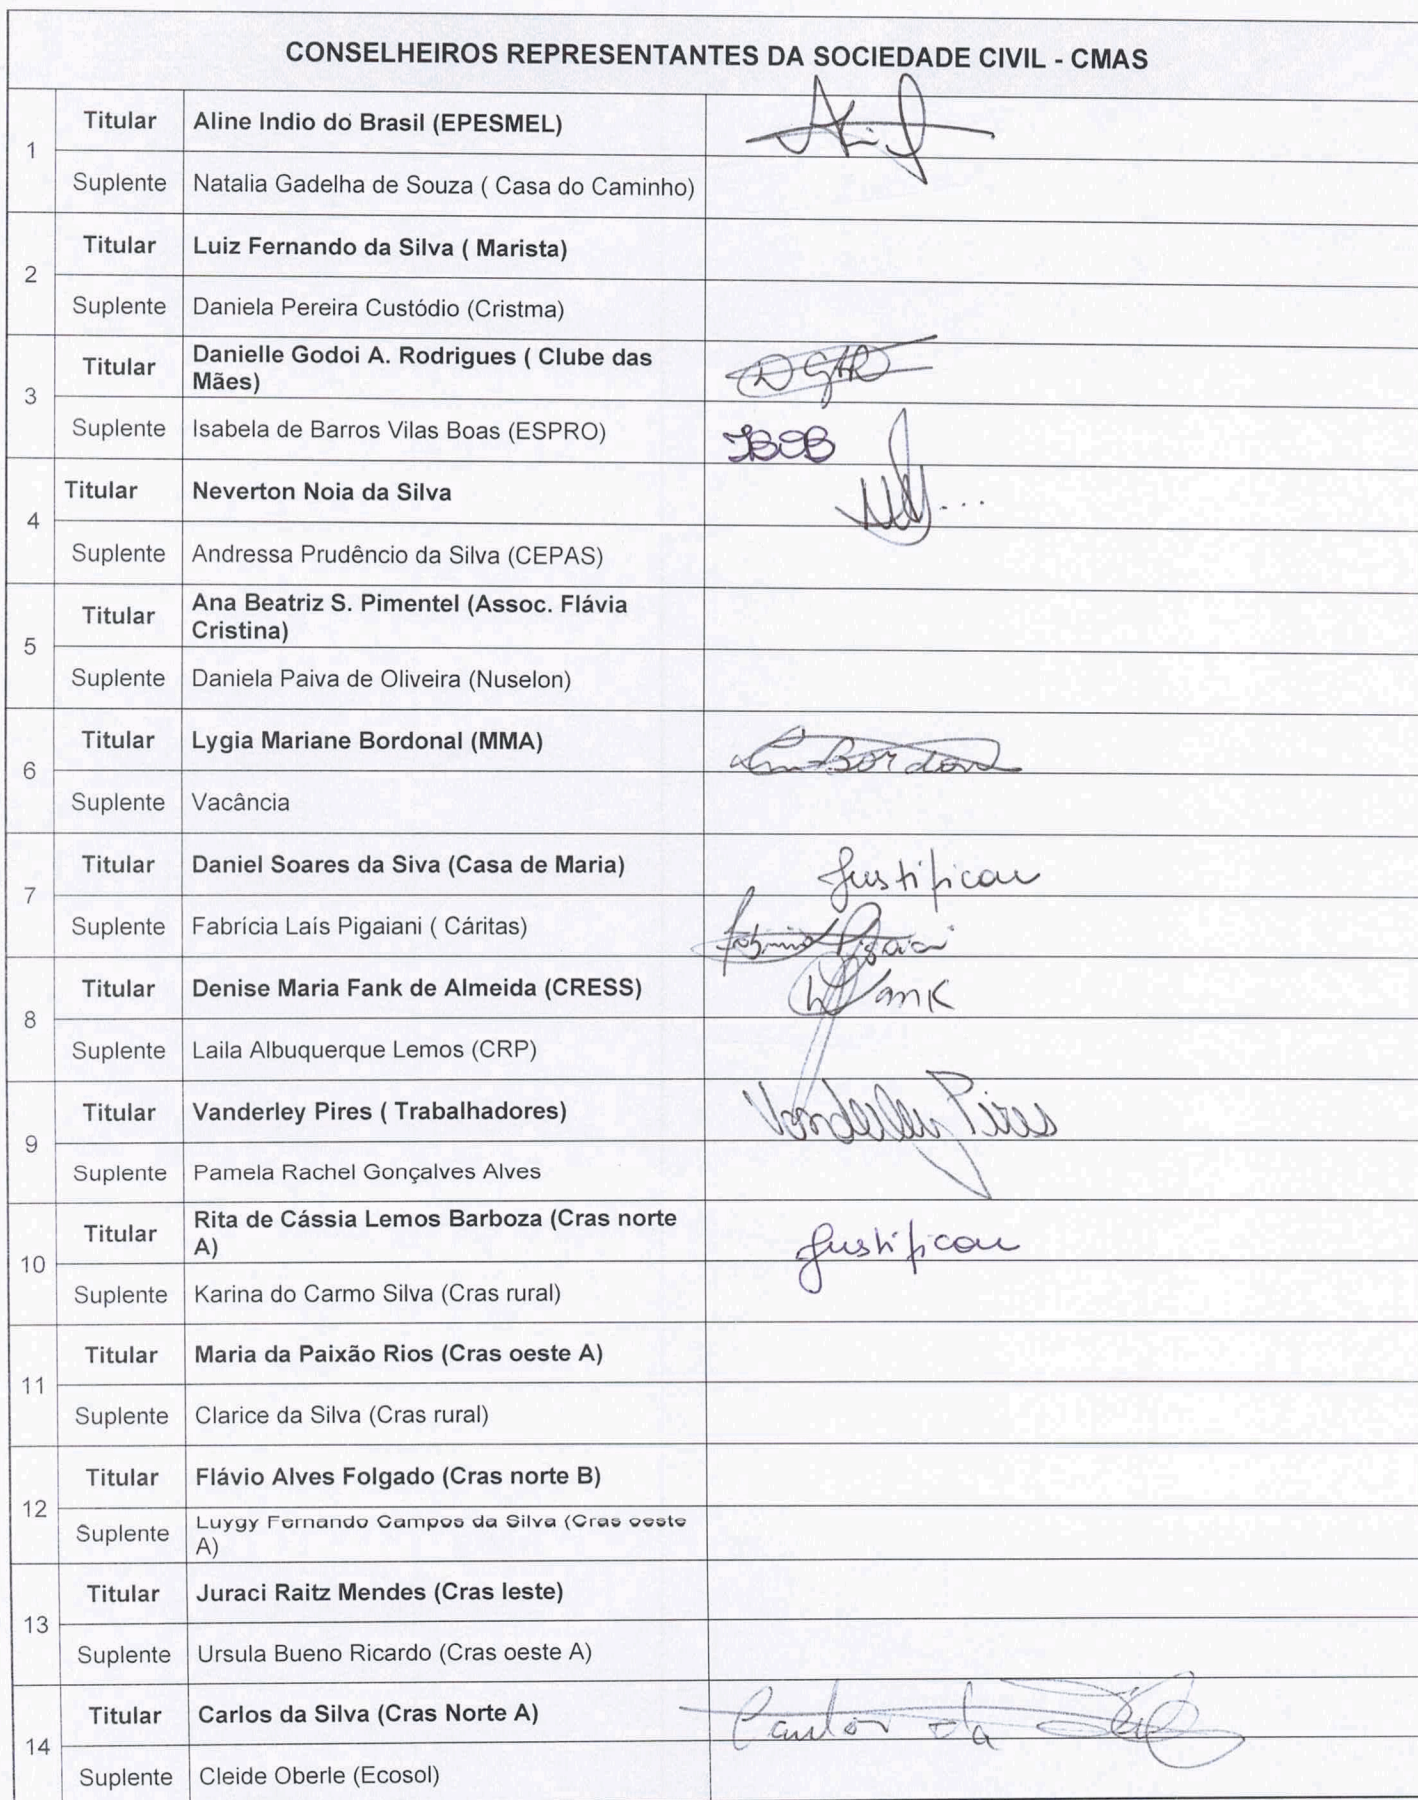 CONSELHEIROS REPRESENTANTES DA SOCIEDADE CIVIL - CMAS
1
Titular Aline Indio do Brasil (EPESMEL)
Suplente Natalia Gadelha de Souza ( Casa do Caminho)
2
Titular Luiz Fernando da Silva ( Marista)
Suplente Daniela Pereira Custódio (Cristma)
3
Titular Danielle Godoi A. Rodrigues ( Clube das
Mães) DGAR
Suplente Isabela de Barros Vilas Boas (ESPRO)
4
Titular Neverton Noia da Silva
Suplente Andressa Prudêncio da Silva (CEPAS)
5
Titular Ana Beatriz S. Pimentel (Assoc. Flávia
Cristina)
Suplente Daniela Paiva de Oliveira (Nuselon)
6
Titular Lygia Mariane Bordonal (MMA)
Suplente Vacância
7
Titular Daniel Soares da Siva (Casa de Maria) Justificou
Suplente Fabrícia Laís Pigaiani ( Cáritas)
8
Titular Denise Maria Fank de Almeida (CRESS)
Suplente Laila Albuquerque Lemos (CRP)
9
Titular Vanderley Pires ( Trabalhadores) Vanderley Pires
Suplente Pamela Rachel Gonçalves Alves
10
Titular Rita de Cássia Lemos Barboza (Cras norte
A) Justificou
Suplente Karina do Carmo Silva (Cras rural)
11
Titular Maria da Paixão Rios (Cras oeste A)
Suplente Clarice da Silva (Cras rural)
12
Titular Flávio Alves Folgado (Cras norte B)
Suplente Luygy Fernando Campos da Silva (Cras oeste
A)
13
Titular Juraci Raitz Mendes (Cras leste)
Suplente Ursula Bueno Ricardo (Cras oeste A)
14
Titular Carlos da Silva (Cras Norte A)
Suplente Cleide Oberle (Ecosol)